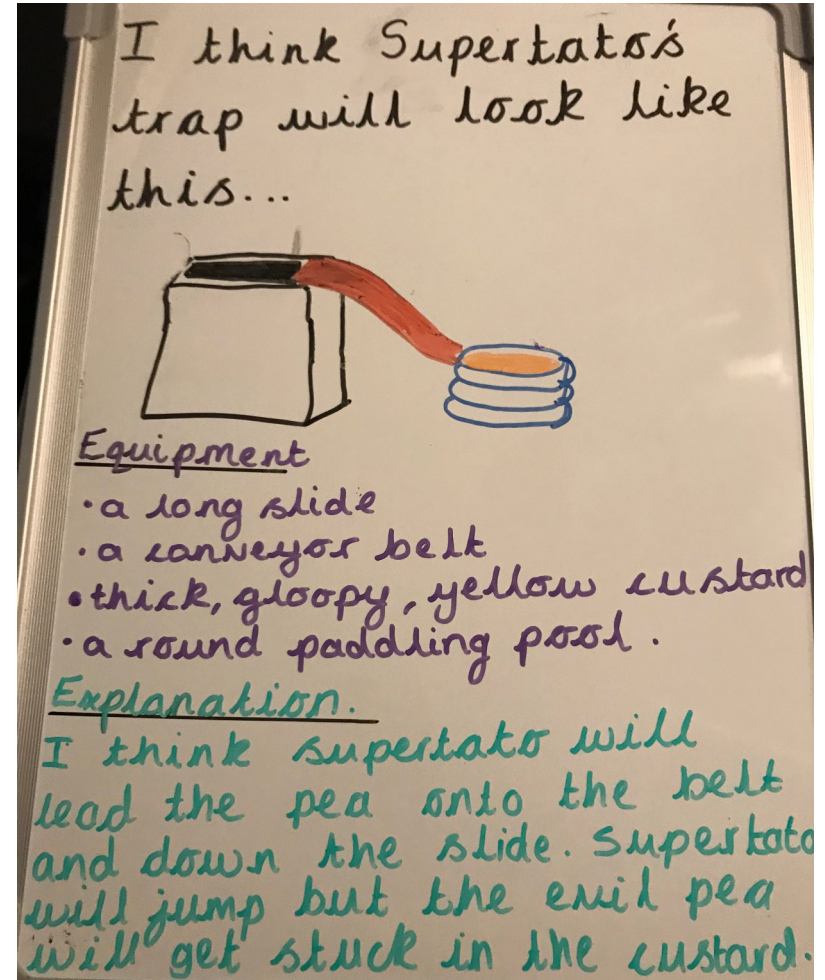 I think Supertato's
trap will look like
this...
Equipment
• a long slide
• a conveyor belt
• thick, gloopy, yellow custard
• a round paddling pool.
Explanation.
I think supertato will
lead the pea onto the belt
and down the slide. Supertato
will jump but the evil pea
will get stuck in the custard.